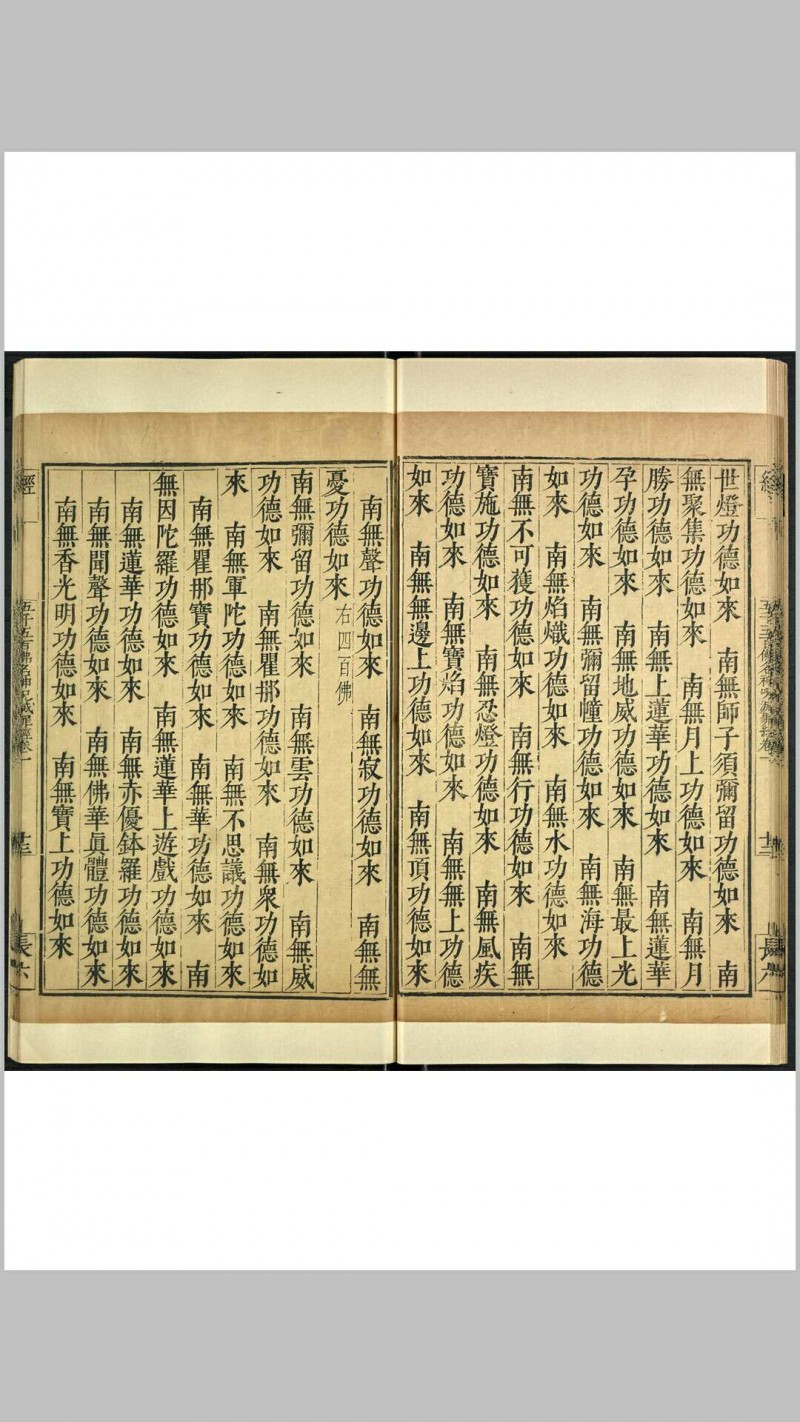 世燈功德如來　南無師子須彌留功德如來　南
無聚集功德如來　南無月上功德如來　南無月
勝功德如來　南無上蓮華功德如來　南無蓮華
孕功德如來　南無地威功德如來　南無最上光
功德如來　南無彌留幢功德如來　南無海功德
如來　南無焰熾功德如來　南無水功德如來
南無不可獲功德如來　南無行功德如來　南無
寶施功德如來　南無忍燈功德如來　南無風疾
功德如來　南無寶焰功德如來　南無上功德
如來　南無無邊上功德如來　南無頂功德如來
南無聲功德如來　南無寂功德如來　南無無
憂功德如來　右四百佛
南無彌留功德如來　南無雲功德如來　南無威
功德如來　南無瞿那功德如來　南無衆功德如
來　南無軍陀功德如來　南無不思議功德如來
南無瞿那寶功德如來　南無華功德如來　南
無因陀羅功德如來　南無蓮華上遊戲功德如來
南無蓮華功德如來　南無赤優鉢羅功德如來
南無聞聲功德如來　南無佛華眞體功德如來
南無香光明功德如來　南無寶上功德如來
經